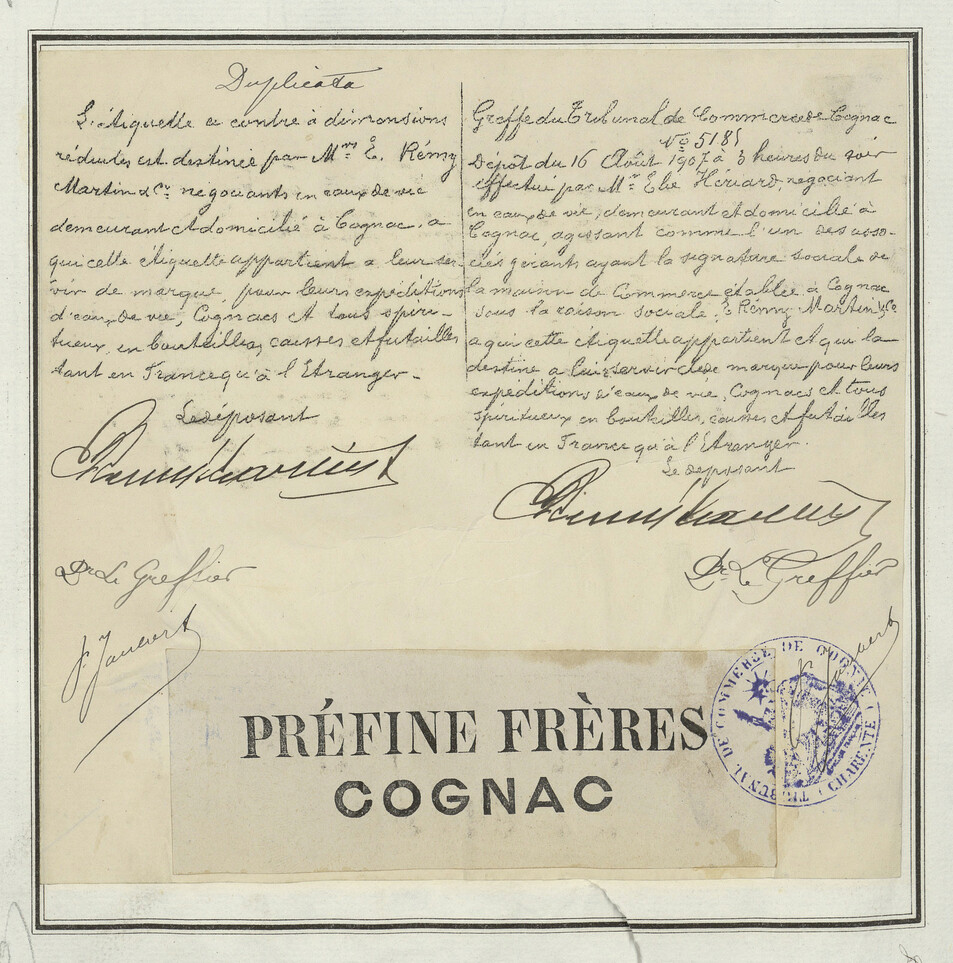 Duplicata
L'étiquette ci contre à dimensions
réduites est destinée par Mrs E. Rémy
Martin & Cie négociants en eaux de vie
demeurant et domicilié à Cognac, a
qui cette étiquette appartient a leur ser
vir de marque, pour leurs expéditions
d'eaux de vie, Cognacs et tous spiri-
tueux, en bouteilles, caisses et futailles
tant en France qu'à l'Etranger -
Le déposant
Remy Martin
Dr Le Greffier
Greffe du Tribunal de Commerce de Cognac
No 5185
Dépôt du 16 Août 1907 à 3 heures du soir
effectué par Mr Elie Hériard, négociant
en eaux de vie, demeurant et domicilié à
Cognac, agissant comme l'un des asso-
ciés gérants ayant la signature sociale de
la maison de Commerce établie à Cognac
sous la raison sociale, E. Rémy Martin & Co
a qui cette étiquette appartient et qui la
destine a leur servir de marque pour leurs
expéditions d'eaux de vie, Cognacs et tous
spiritueux en bouteilles, caisses et futailles
tant en France qu'à l'Etranger.
Le déposant
Remy Martin
Dr Le Greffier
PRÉFINE FRÈRES
COGNAC
TRIBUNAL DE COMMERCE DE COGNAC (CHARENTE)